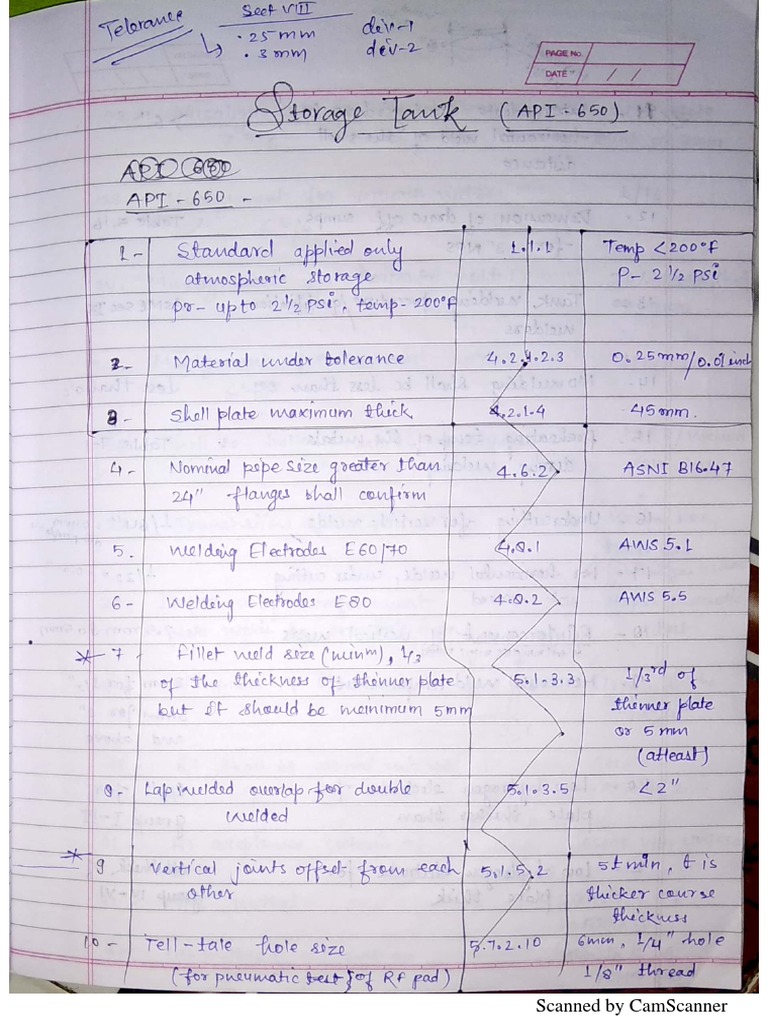 Telerance
Sect VIII
.25 mm div-1
.3 mm div-2
PAGE No.
DATE / /
Storage Tank (API-650)
API-650 -
1- Standard applied only 1.1.1 Temp <200°f
atmospheric storage P- 2 1/2 PSi
pr- upto 2 1/2 PSi, temp-200°f
2- Material under tolerance 4.2.4.2.3 0.25mm/0.01 inch
3- Shell plate maximum thick 4.2.1.4 45mm.
4- Nominal pipe size greater than 4.6.2 ASNI B16.47
24" flanges shall confirm
5. Welding Electrodes E60/70 4.8.1 AWS 5.1
6- Welding Electrodes E80 4.8.2 AWS 5.5
7- fillet weld size (minm), 1/3
of the thickness of thinner plate 5.1-3.3 1/3rd of
but it should be meinimum 5mm thinner plate
or 5 mm
(atleast)
8- Lap welded overlap for double 5.1.3.5 <2"
welded
9 Vertical joints offset from each 5.1.5.2 5t min, t is
other thicker course
thickness
10- Tell-tale hole size 5.7.2.10 6mm, 1/4" hole
(for pneumatic test of Rf pad) 1/8" thread
Scanned by CamScanner